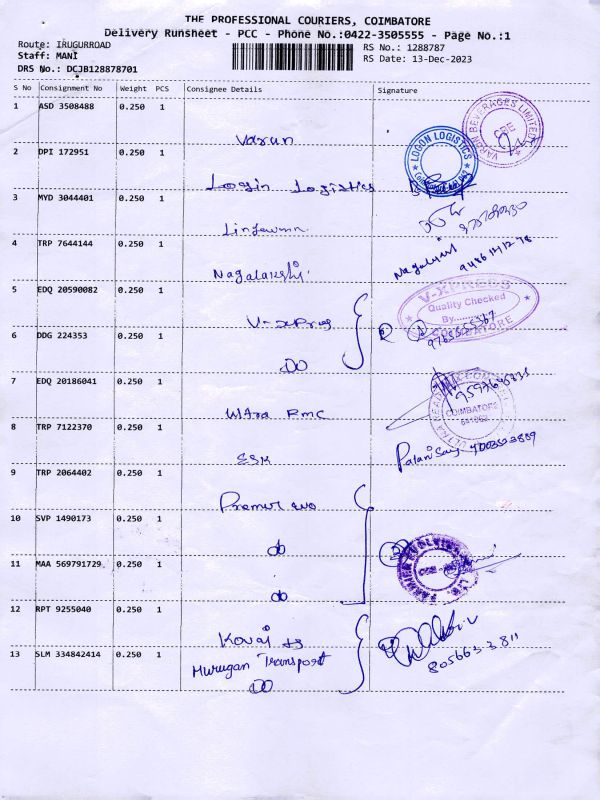 THE PROFESSIONAL COURIERS, COIMBATORE
Delivery Runsheet - PCC - Phone No.:0422-3505555 - Page No.:1
Route: IRUGURROAD
RS No.: 1288787
Staff: MANI
RS Date: 13-Dec-2023
DRS No.: DCJB128878701
S No Consignment No Weight PCS Consignee Details Signature
1 ASD 3508488 0.250 1 Varun
VARUN BEVERAGES LIMITED
2 DPI 172951 0.250 1 Login Logistics
LOGON LOGISTICS
3 MYD 3044401 0.250 1
4 TRP 7644144 0.250 1 Nagalakshi
5 EDQ 20590082 0.250 1 V-xPres
V-XPRESS
Quality Checked
By
COIMBATORE
6 DDG 224353 0.250 1 DO
7 EDQ 20186041 0.250 1 RMC
COIMBATORE
8 TRP 7122370 0.250 1 ESK
9 TRP 2064402 0.250 1
10 SVP 1490173 0.250 1 do
11 MAA 569791729 0.250 1 do
12 RPT 9255040 0.250 1
805663 3811
13 SLM 334842414 0.250 1 Murugan Transport
DO